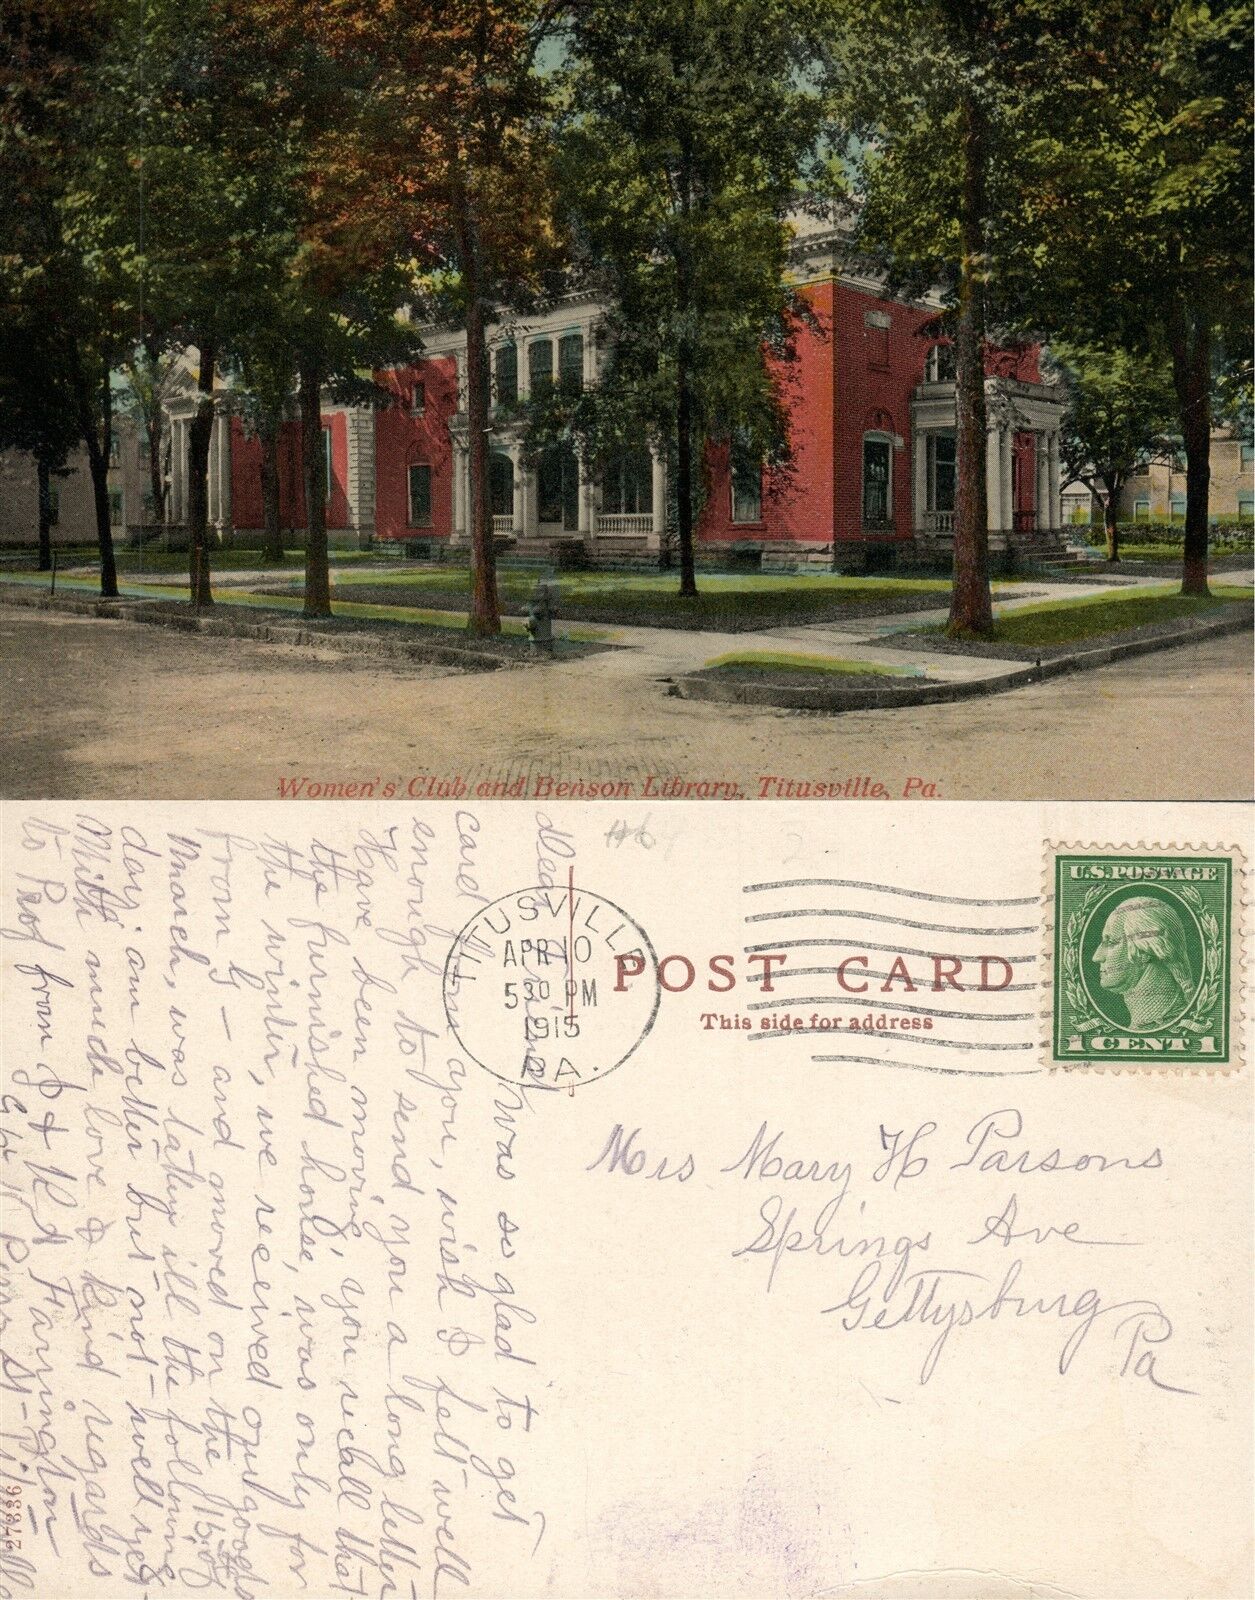 Women's Club and Benson Library, Titusville, Pa.
#6
TITUSVILLE
APR 10
5 30 PM
1915
PA.
POST CARD
This side for address
U.S. POSTAGE
1 CENT 1
Mrs Mary H Parsons
Springs Ave
Gettysburg
Pa
Dear Friend Was so glad to get
card from you, wish I felt well
enough to send you a long letter
Have been moving, you recall that
the furnished house, was only for
the winter, we received our goods
from Ky - and moved on the 15 of
March, was taken ill the following
day, am better but not - well yet -
With much love & kind regards
to Prof from J & K A Farrington
St - Titusville
27336